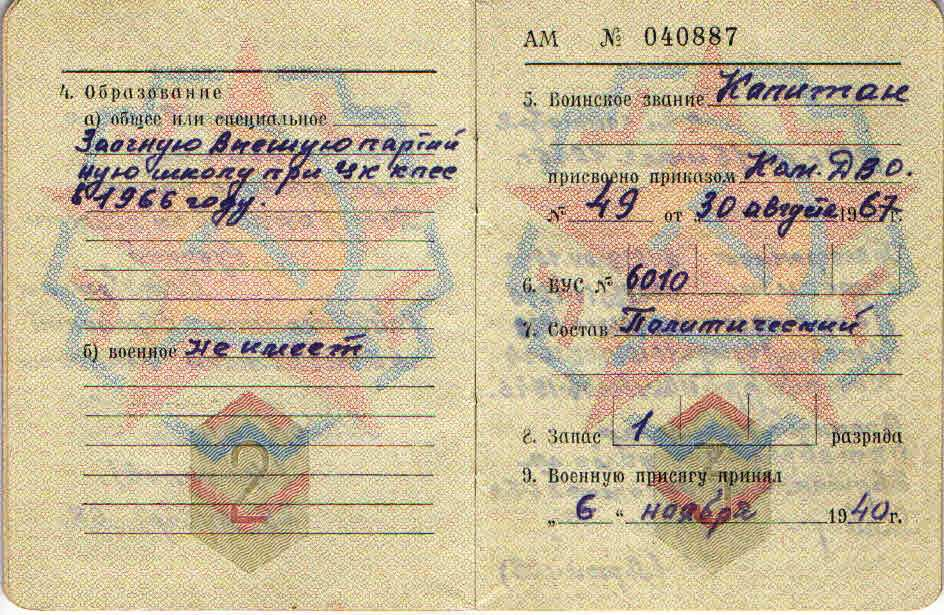 4. Образование
а) общее или специальное
Заочную Высшую партий
ную школу при ЦК КПСС
в 1966 году.
б) военное не имеет
2
АМ № 040887
5. Воинское звание Капитан
присвоено приказом Ком. ДВО.
№ 49 от 30 августа 1967 г.
6. ВУС № 6010
7. Состав Политический
8. Запас 1 разряда
9. Военную присягу принял
„ 6 “ ноября 1940 г.